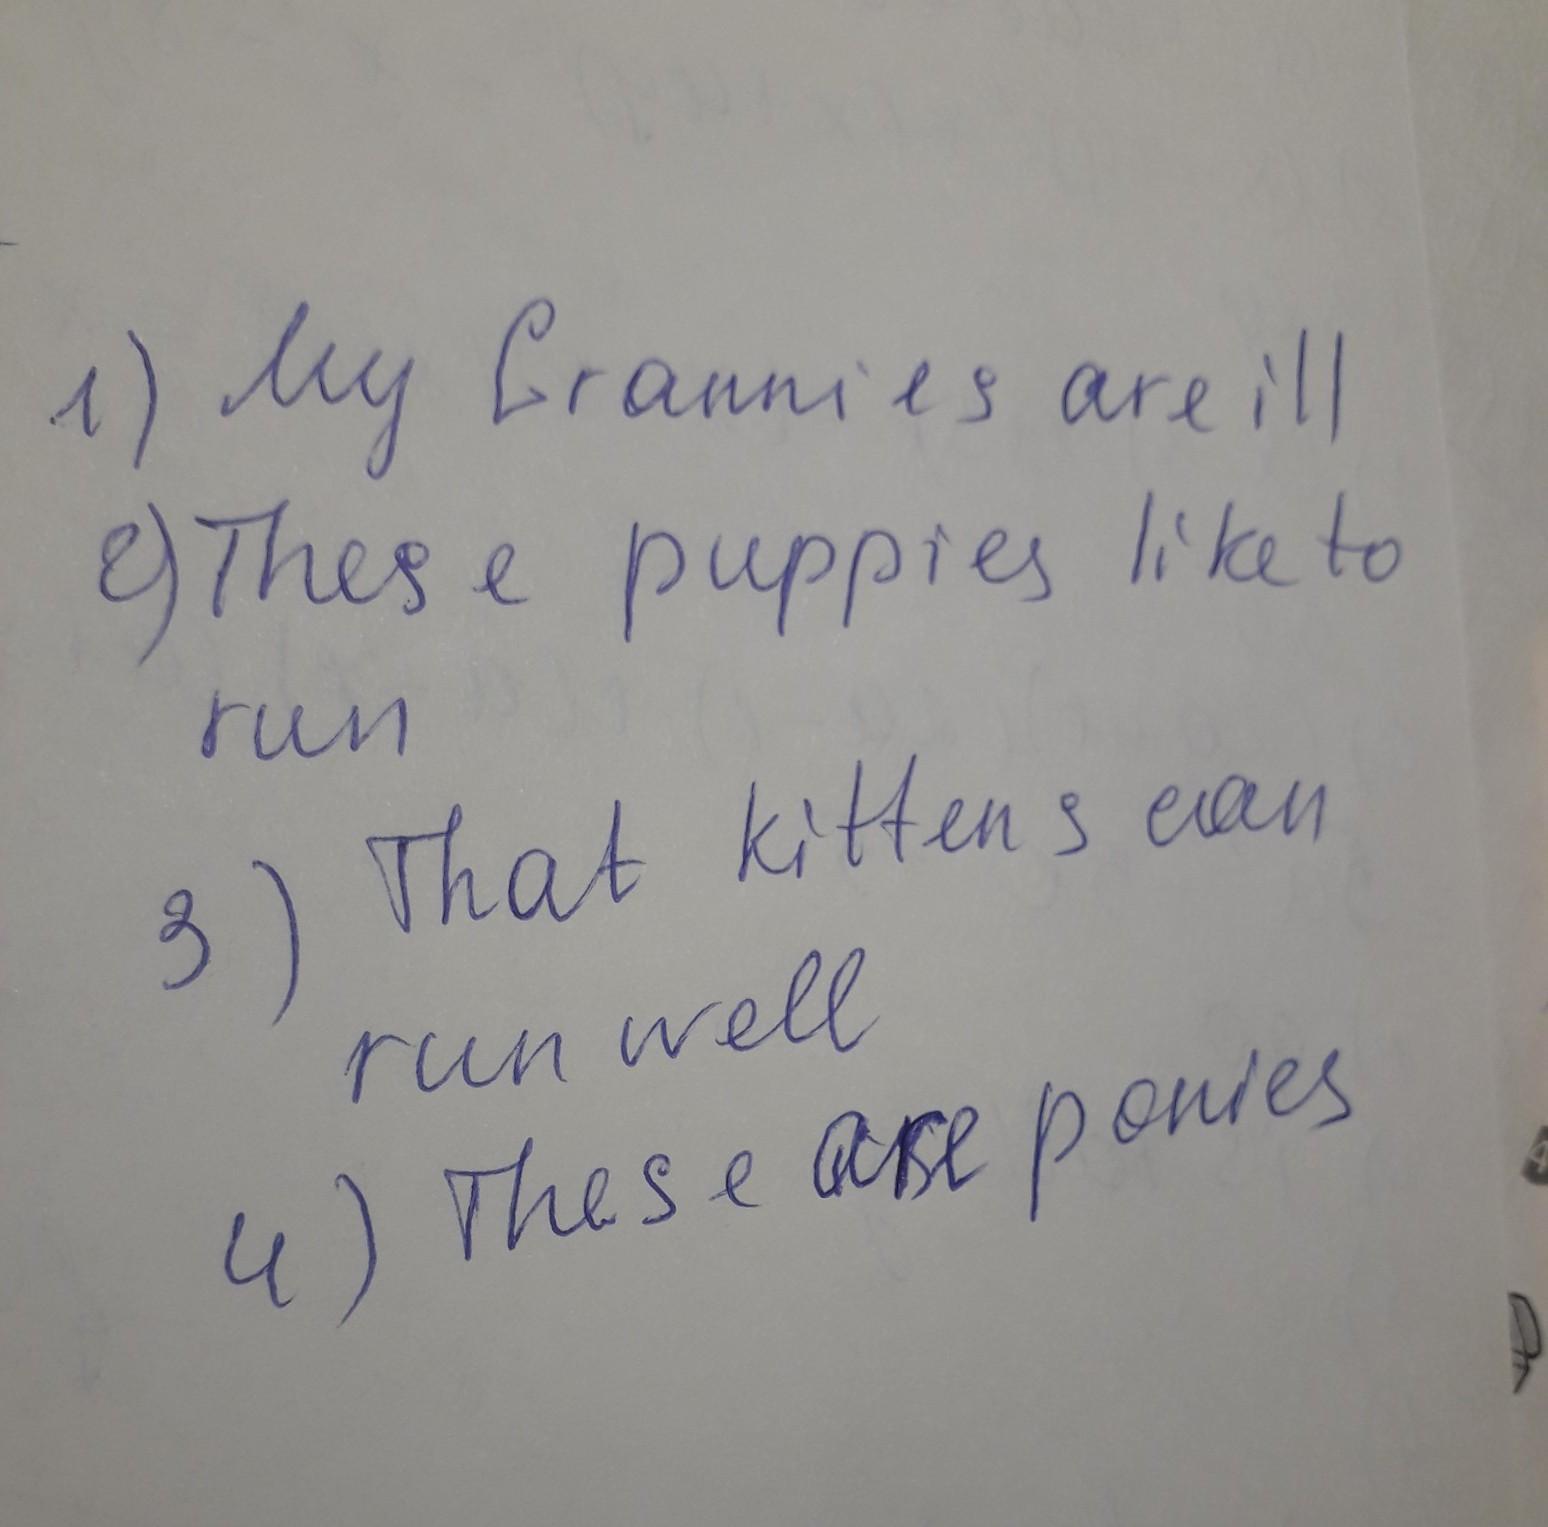 1) My Grannies are ill
2) These puppies like to
run
3) That kittens can
run well
4) These are ponies